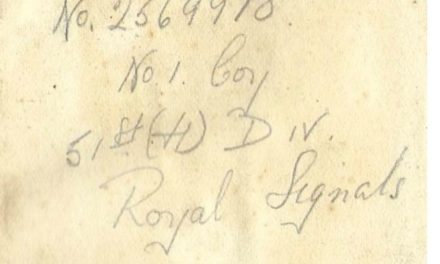 No. 2569910.
No 1. Coy
51st (H) Div.
Royal Signals